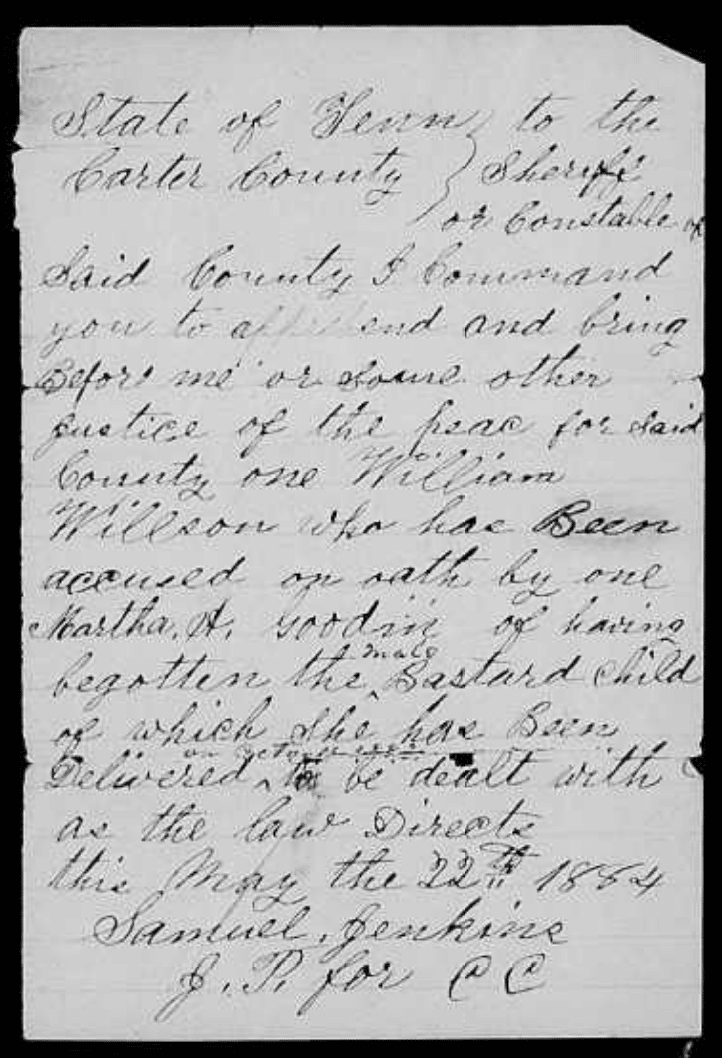 State of Tenn } to the
Carter County } Sheriff
or Constable of
Said County I Command
you to apprehend and bring
Before me or some other
justice of the peac for said
County one William
Willson who has Been
accused on oath by one
Martha. A. Goodin of having
begotten the male Bastard child
of which she has Been
Delivered to be dealt with
as the law Directs
this May the 22th 1884
Samuel. Jenkins
J. P. for C C